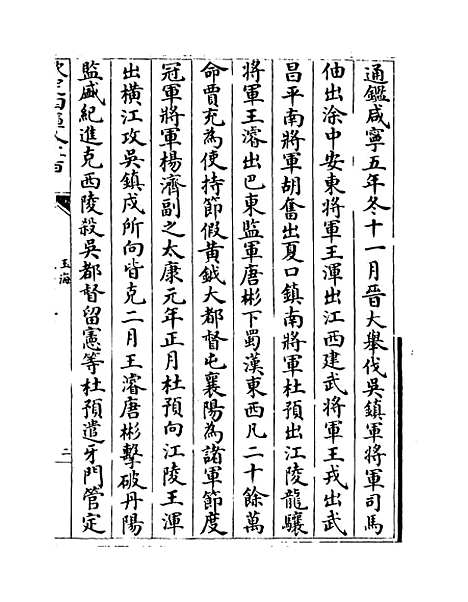 通鑑咸寧五年冬十一月晉大舉伐吳鎮軍將軍司馬
伷出涂中安東將軍王渾出江西建武將軍王戎出武
昌平南將軍胡奮出夏口鎮南將軍杜預出江陵龍驤
將軍王濬出巴東監軍唐彬下蜀漢東西凡二十餘萬
命賈充為使持節假黃鉞大都督屯襄陽為諸軍節度
冠軍將軍楊濟副之太康元年正月杜預向江陵王渾
出橫江攻吳鎮戍所向皆克二月王濬唐彬擊破丹陽
監盛紀進克西陵殺吳都督留憲等杜預遣牙門管定
玉海
二